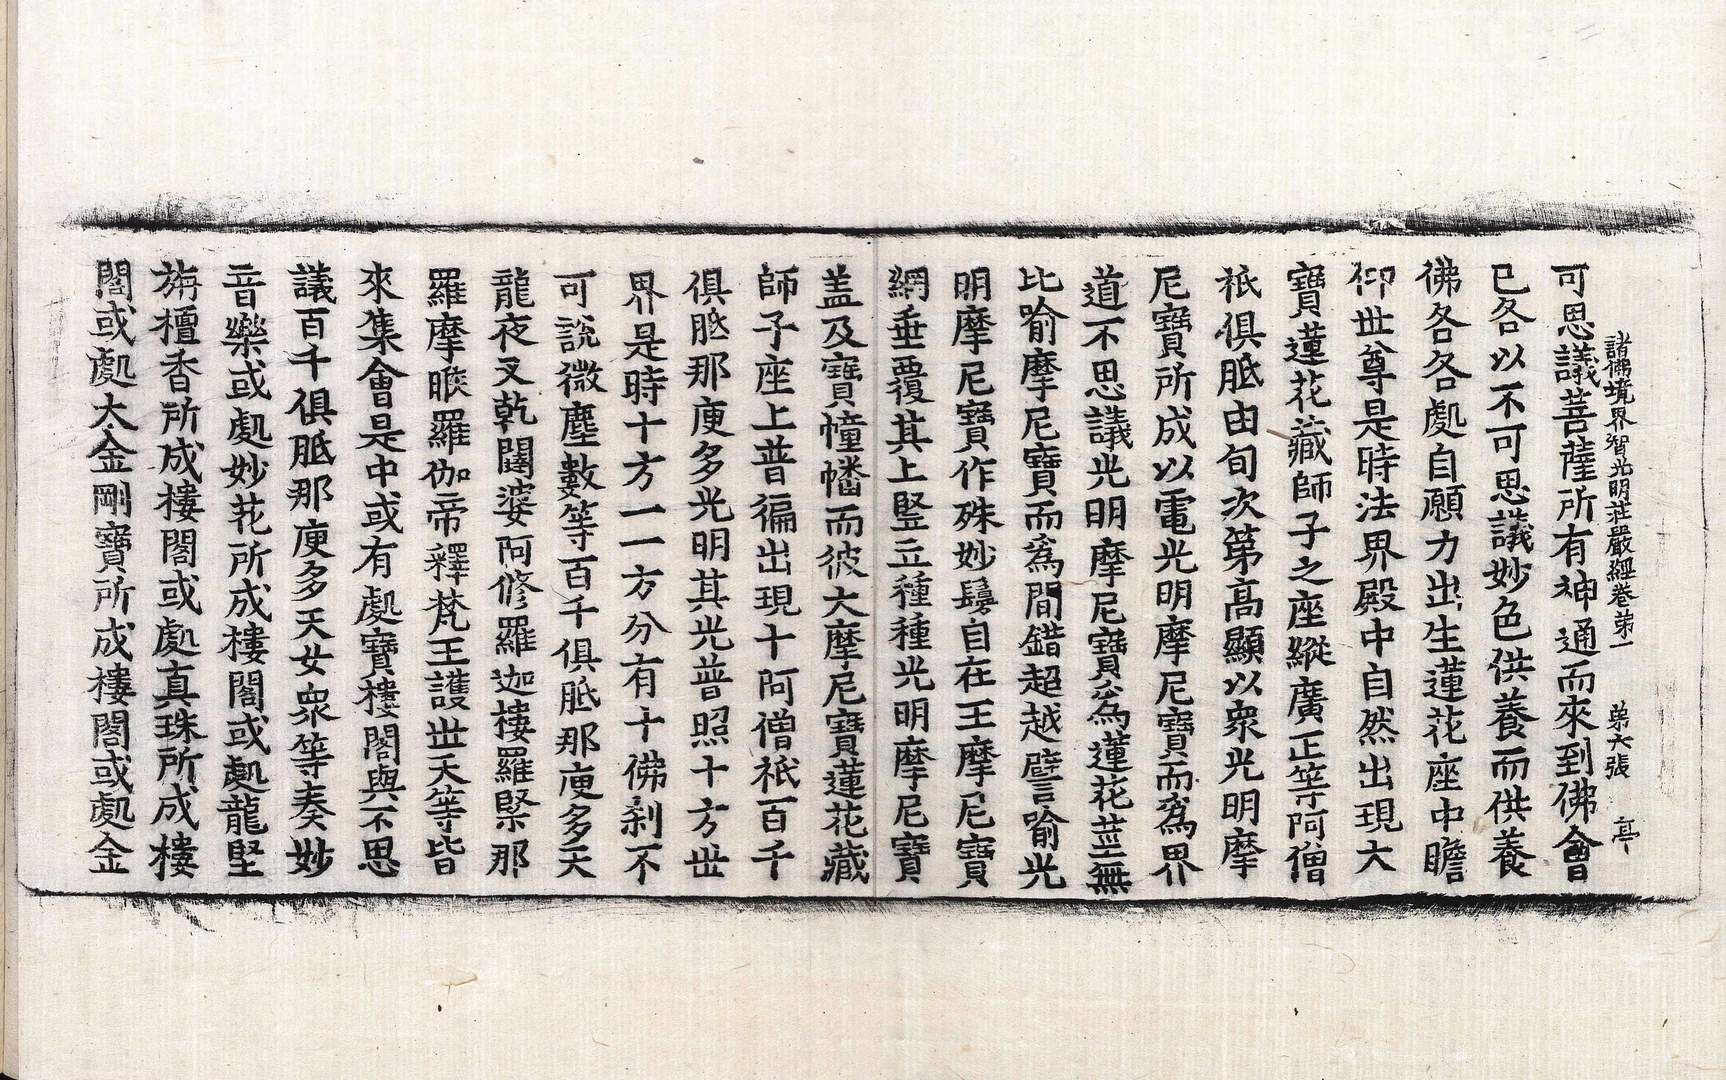 諸佛境界智光明莊嚴經卷第一 第六張 亭
可思議菩薩所有神通而來到佛會
已各以不可思議妙色供養而供養
佛各各處自願力出生蓮花座中瞻
仰世尊是時法界殿中自然出現大
寶蓮花藏師子之座縱廣正等阿僧
祇俱胝由旬次第高顯以衆光明摩
尼寶所成以電光明摩尼寶而爲界
道不思議光明摩尼寶爲蓮花莖無
比喻摩尼寶而爲間錯超越譬喻光
明摩尼寶作殊妙鬘自在王摩尼寶
網垂覆其上竪立種種光明摩尼寶
盖及寶幢幡而彼大摩尼寶蓮花藏
師子座上普徧出現十阿僧祇百千
俱胝那庾多光明其光普照十方世
界是時十方一一方分有十佛刹不
可說微塵數等百千俱胝那庾多天
龍夜叉乾闥婆阿修羅迦樓羅緊那
羅摩睺羅伽帝釋梵王護世天等皆
來集會是中或有處寶樓閣與不思
議百千俱胝那庾多天女衆等奏妙
音樂或處妙花所成樓閣或處龍堅
旃檀香所成樓閣或處真珠所成樓
閣或處大金剛寶所成樓閣或處金